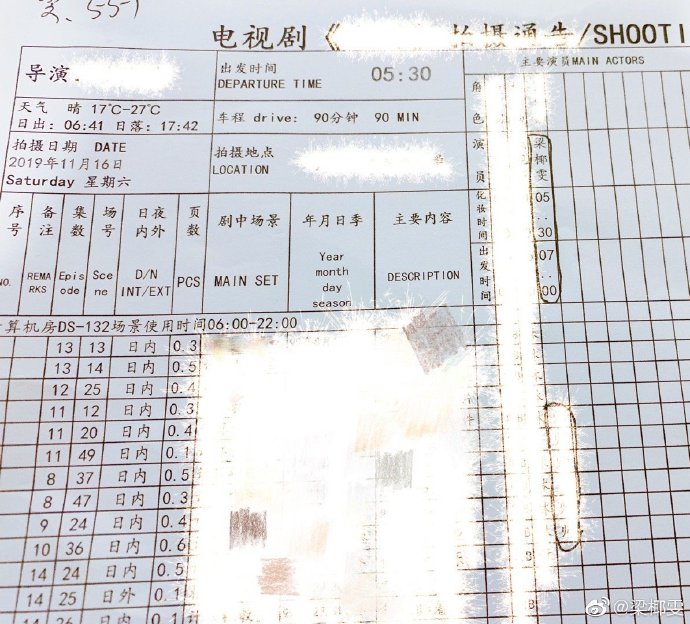 电视剧《 拍摄通告/SHOOTI
导演
出发时间
DEPARTURE TIME
05:30
主要演员MAIN ACTORS
天气 晴 17℃-27℃
日出: 06:41 日落: 17:42
车程 drive: 90分钟 90 MIN
角色
拍摄日期 DATE
2019年11月16日
Saturday 星期六
拍摄地点
LOCATION
演员
梁椰雯
化妆时间
05..30
出发时间
07..00
序号 备注 集数 场号 日夜内外 页数 剧中场景 年月日季 主要内容
NO. REMARKS Episode Scene D/N INT/EXT PCS MAIN SET Year month day season DESCRIPTION
算机房DS-132场景使用时间06:00-22:00
13 13 日内 0.3
13 14 日内 0.5
12 25 日内 0.4
11 12 日内 0.3
11 20 日内 0.4
11 49 日内 0.1
8 37 日内 0.5
8 47 日内 0.3
9 24 日内 0.4
10 36 日内 0.6
14 24 日内 0.5
14 25 日外 0.1
14 26 日内 0.1
@梁椰雯